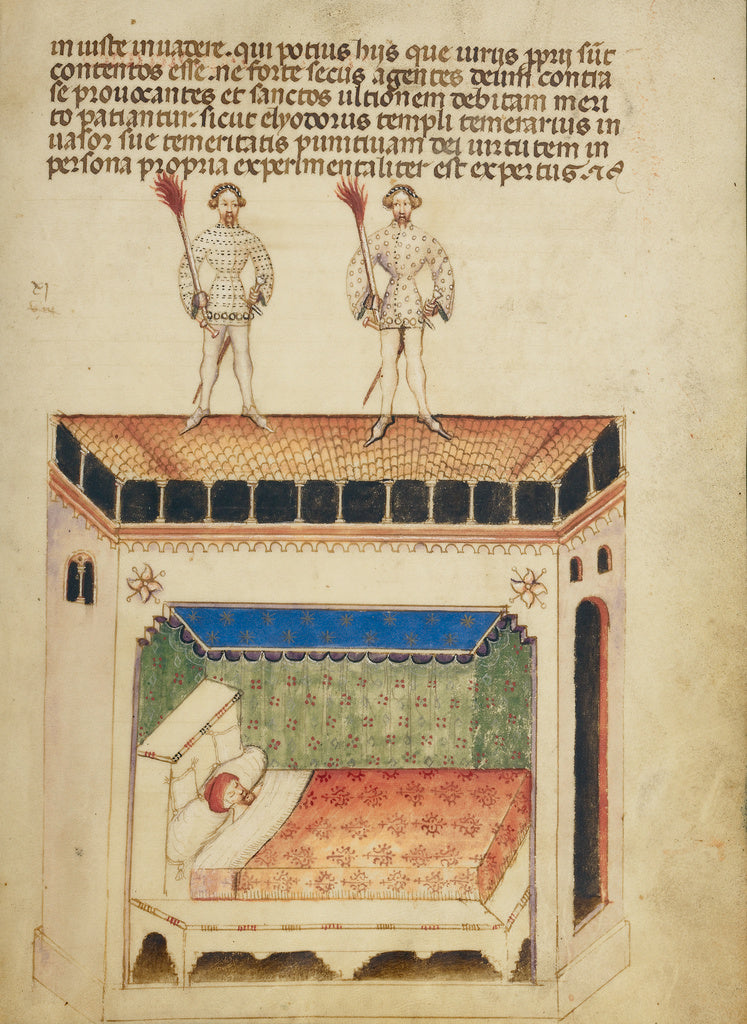 in iuste inuadere. qui potius hijs que iuriis pprij sūt
contentos esse. ne forte secus agentes deum contra
se prouocantes et sanctos ultionem debitam meri
to patiantur. sicut elyodorus templi temerarius in
uasor sue temeritatis punitiuam dei uirtutem in
persona propria experimentaliter est expertus.